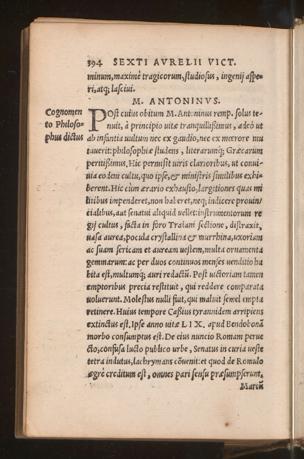 394 SEXTI AVRELII VICT.
minum, maximè tragicorum, studiosus, ingenij aspe-
ri, atq; lasciui.
M. ANTONINVS.
Cognomen
to Philoso-
phus dictus
POst cuius obitum M. Antoninus remp. solus te-
nuit, à principio uitæ tranquillissimus, adeò ut
ab infantia uultum nec ex gaudio, nec ex mœrore mu
tauerit: philosophiæ studens, literarumq; Græcarum
peritißimus. Hic permisit uiris clarioribus, ut conui-
uia eodem cultu, quo ipse, & ministris similibus exhi-
berent. Hic cùm ærario exhausto, largitiones quas mi
litibus impenderet, non haberet, neq; indicere prouin/
cialibus, aut senatui aliquid uellet: instrumentorum re
gij cultus, facta in foro Traiani sectione, distraxit,
uasa aurea, pocula crystallina & murrhina, uxoriam
ac suam sericam et auream uestem, multa ornamenta
gemmarum: ac per duos continuos menses uenditio ha
bita est, multumq; auri redactū. Post uictoriam tamen
emptoribus precia restituit, qui reddere comparata
uoluerunt. Molestus nulli fuit, qui maluit semel empta
retinere. Huius tempore Caßius tyrannidem arripiens
extinctus est. Ipse anno uitæ LIX. apud Bendobonā
morbo consumptus est. De eius nuncio Romam perue
cto, confusa luctu publico urbe, Senatus in curia ueste
tetra indutus, lachrymans cōuenit: et quod de Romulo
ægrè creditum est, omnes pari sensu præsumpserunt,
Marcū